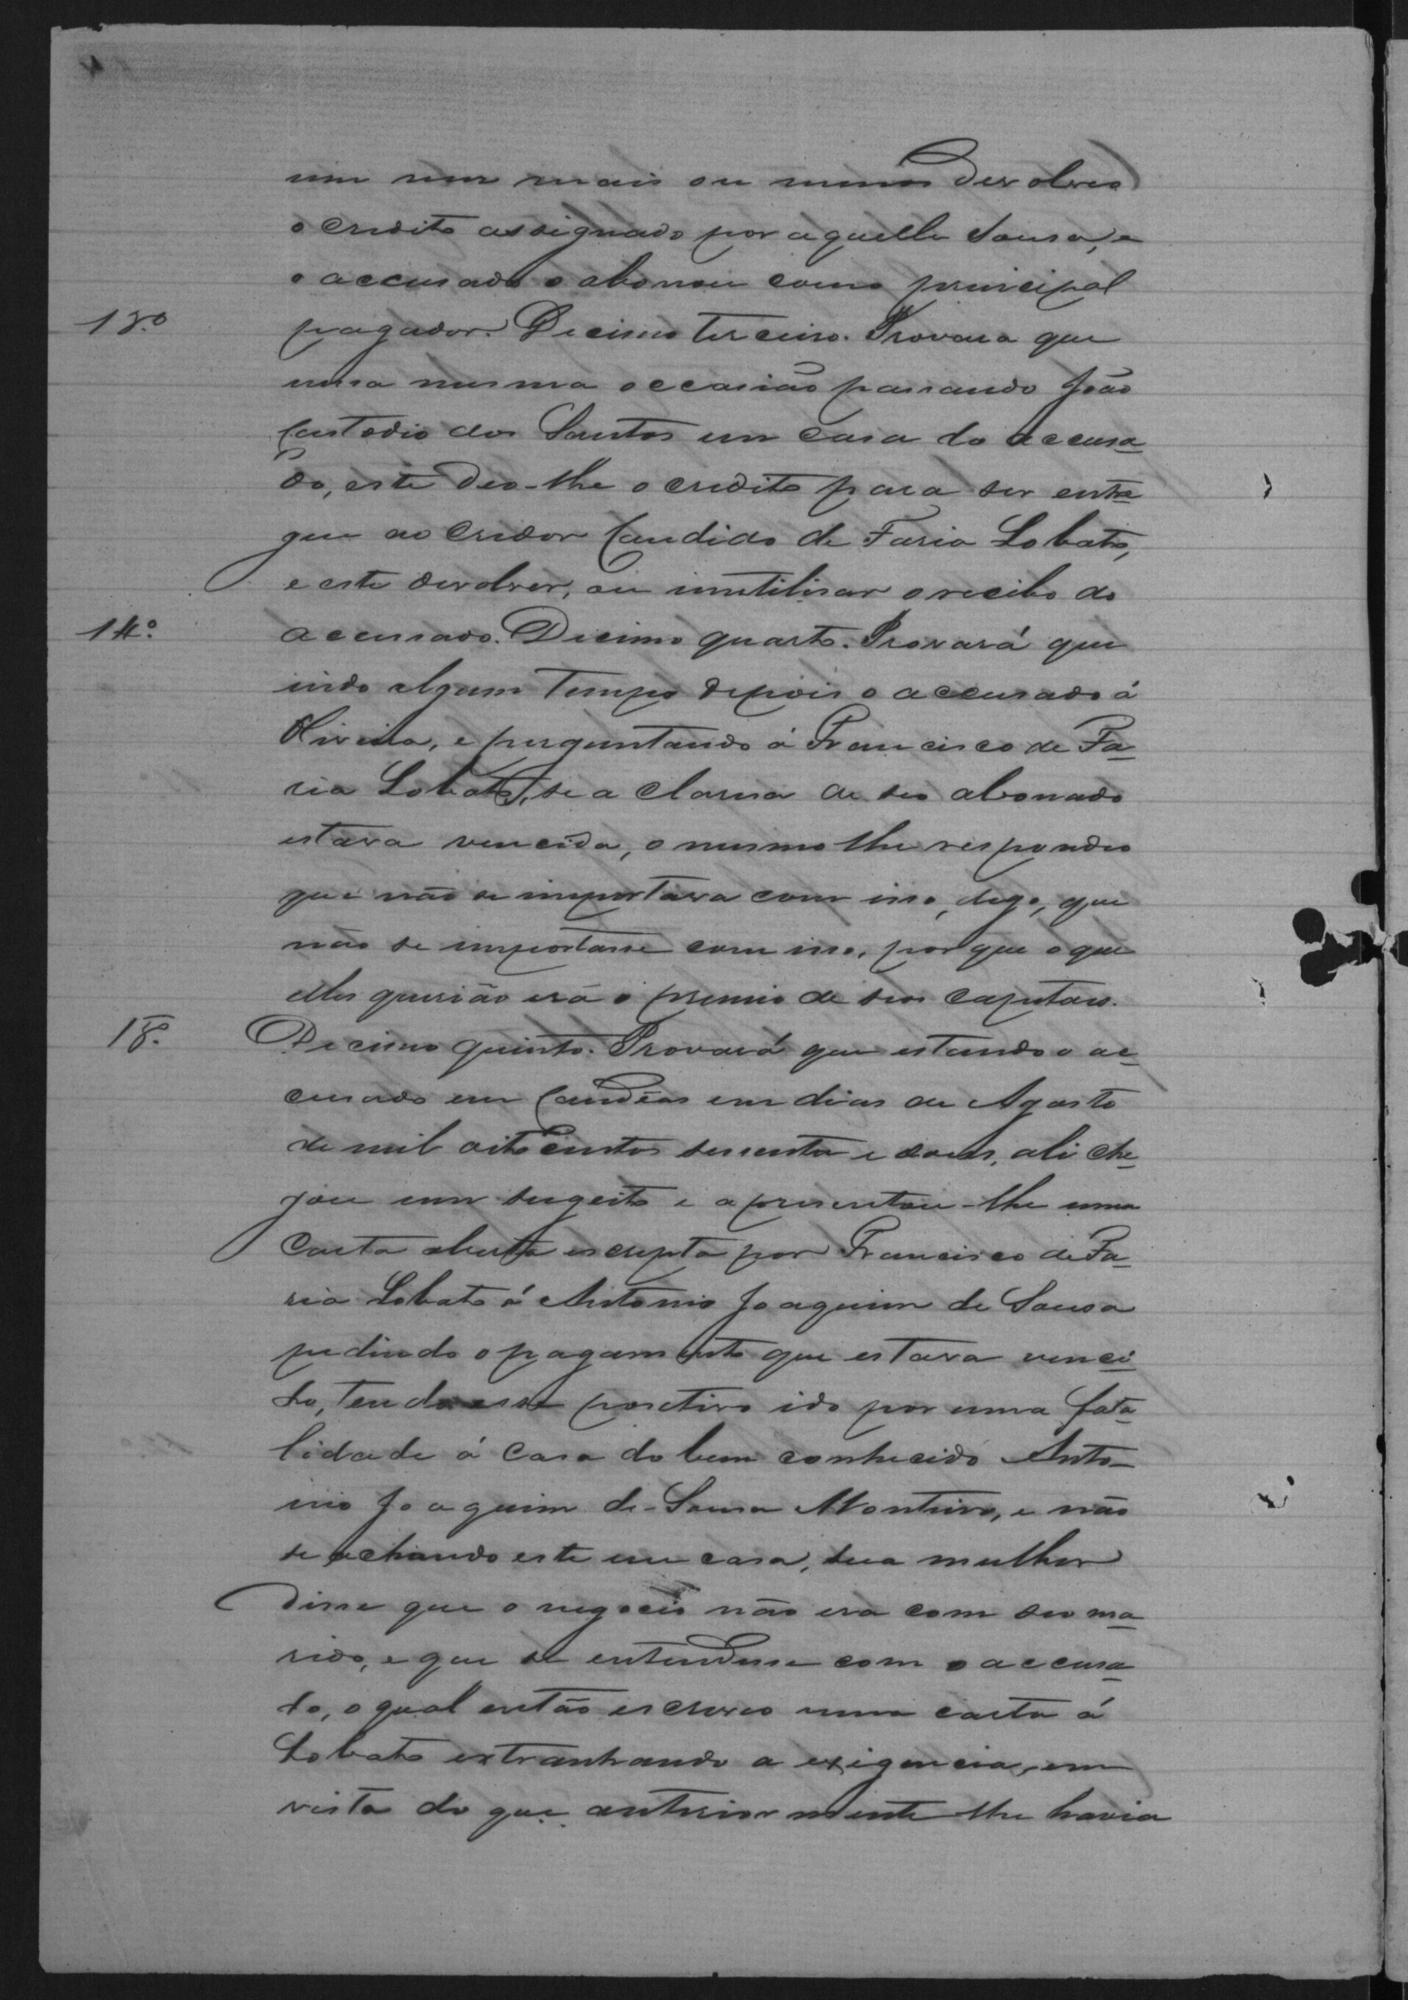 um mez mais ou menos devolveo
o credito assignado por aquelle Sousa, e
o accusado o abonou como principal
13.º pagador. Decimo terceiro. Provara que
nessa mesma occasião passando João
Custodio dos Santos em casa do accusa-
do, este deo-lhe o credito para ser entre-
gue ao credor Candido de Faria Lobato,
e este devolver, ou inutilisar o recibo do
14.º accusado. Decimo quarto. Provará que
indo algum tempo depois o accusado á
Oliveira, e perguntando á Francisco de Fa-
ria Lobato, se a clausa de seo abonado
estava vencida, o mesmo lhe respondeo
que não se importava com isso, digo, que
não se importasse com isso, por que o que
elles querião era o premio de seos capitaes.
15.º Decimo quinto. Provará que estando o ac-
cusado em Candeas em dias de Agosto
de mil oitocentos sessenta e dous, ali che-
gou um sugeito e apresentou-lhe uma
carta aberta escripta por Francisco de Fa-
ria Lobato á Antonio Joaquim de Sousa
pedindo o pagamento que estava venci-
do, tendo esse positivo ido por uma fata-
lidade á casa do bem conhecido Anto-
nio Joaquim de Sousa Monteiro, e não
se achando este em casa, sua mulher
disse que o negocio não era com seo ma-
rido, e que se entendesse com o accusa-
do, o qual então escreveo uma carta á
Lobato extranhando a exigencia, em
vista do que anteriormente lhe havia